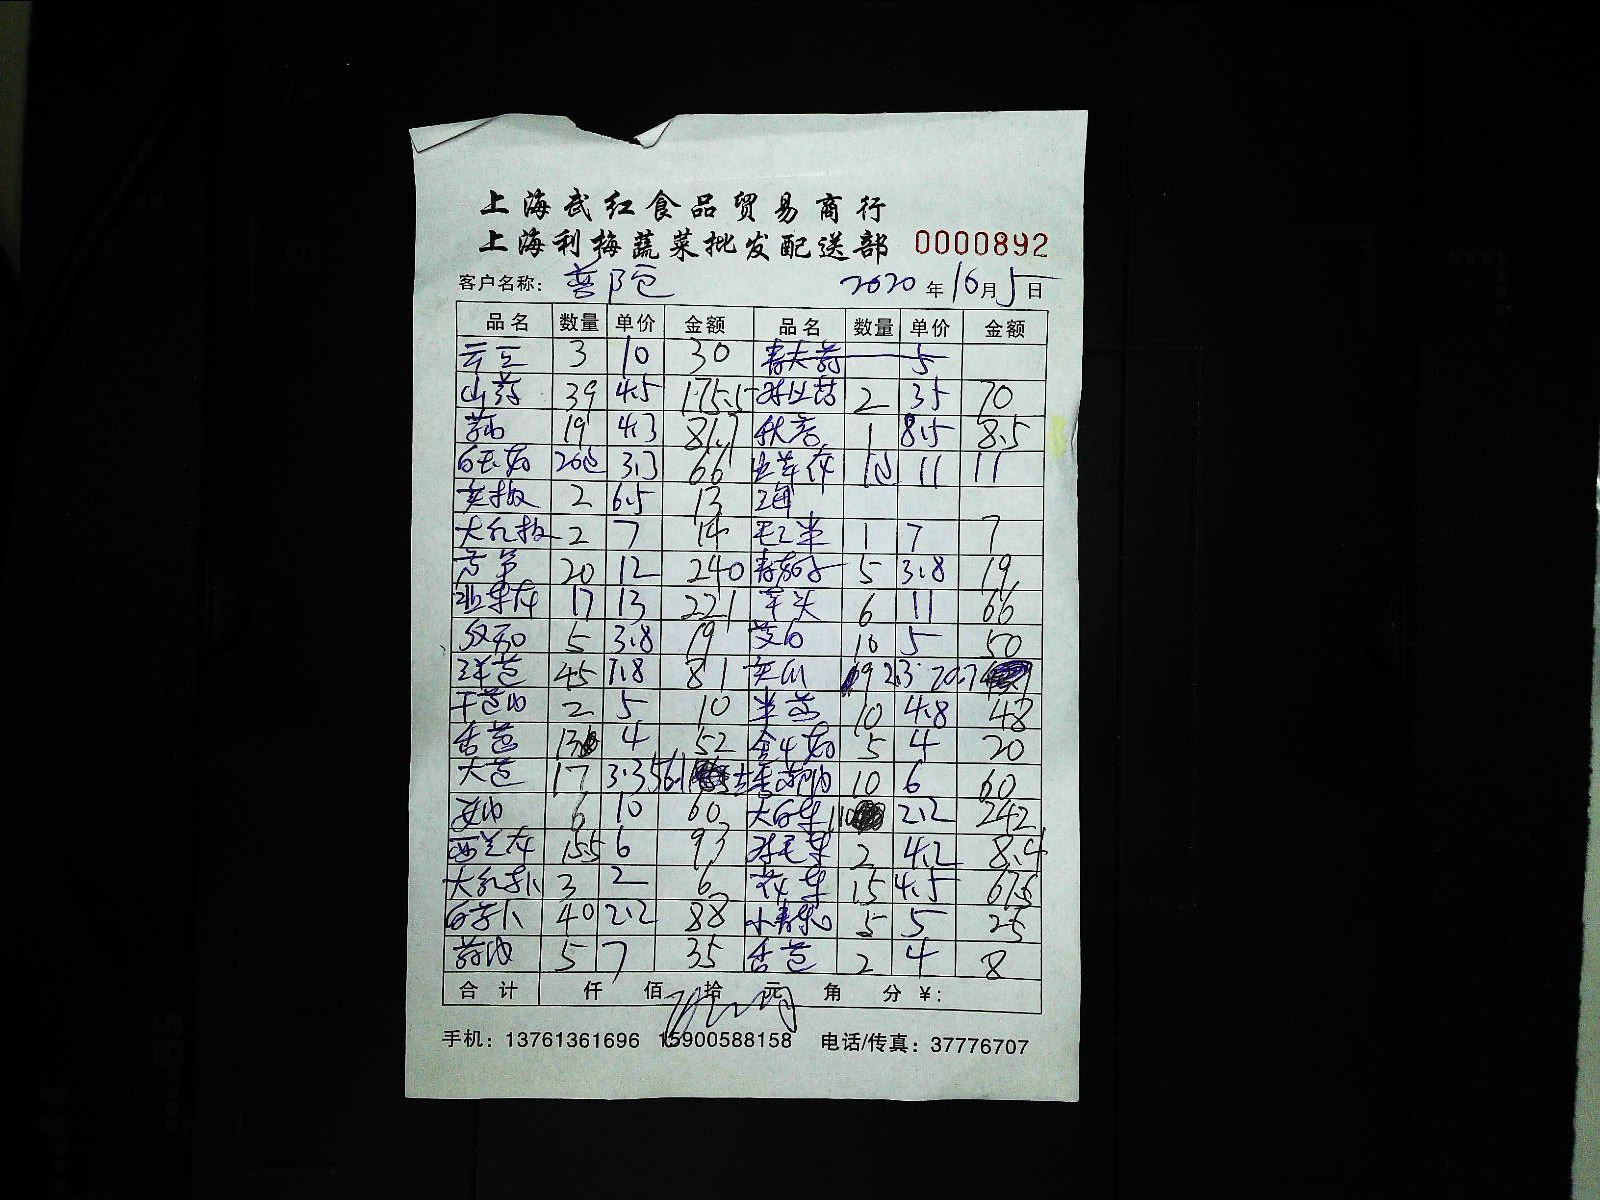 上海武红食品贸易商行
上海利梅蔬菜批发配送部 0000892
客户名称：普陀 2020年10月5日
品名 数量 单价 金额 品名 数量 单价 金额
云豆 3 10 30 5
山药 39 4.5 175.5 2 35 70
19 4.3 81.7 1 8.5 8.5
白玉菇 20包 3.3 66 11 11
尖椒 2 6.5 13
大红椒 2 7 14 毛豆米 1 7 7
芦笋 20 12 240 青茄子 5 3.8 19
13 221 芋头 6 11 66
5 3.8 19 茭白 10 5 50
洋葱 45 1.8 81 9 2.3 20.7
2 5 10 10 4.8 48
香葱 13 4 52 金针菇 5 4 20
大葱 17 3.3 56.1 10 6 60
6 10 60 大白菜 110 2.2 242
西兰花 15.5 6 93 2 4.2 8.4
3 2 6 花菜 15 4.5 67.5
40 2.2 88 小青菜 5 5 25
5 7 35 香葱 2 4 8
合计 仟 佰 拾 元 角 分 ¥：
手机：13761361696 15900588158 电话/传真：37776707